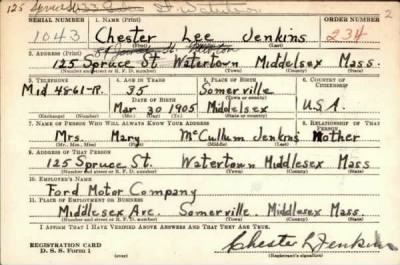 125 Spruce St. Watertown
2
SERIAL NUMBER 1. NAME (Print) ORDER NUMBER
1043 Chester Lee Jenkins 234
(First) (Middle) (Last)
2. ADDRESS (Print)
125 Spruce St. Watertown Middlesex Mass.
(Number and street or R. F. D. number) (Town) (County) (State)
3. TELEPHONE 4. AGE IN YEARS 5. PLACE OF BIRTH 6. COUNTRY OF CITIZENSHIP
Mid 4861-R. 35 Somerville
DATE OF BIRTH (Town or county)
Mar 30 1905 Middlesex U.S.A.
(Exchange) (Number) (Mo.) (Day) (Yr.) (State or country)
7. NAME OF PERSON WHO WILL ALWAYS KNOW YOUR ADDRESS 8. RELATIONSHIP OF THAT PERSON
Mrs. Mary McCullum Jenkins Mother
(Mr., Mrs., Miss) (First) (Middle) (Last)
9. ADDRESS OF THAT PERSON
125 Spruce St. Watertown Middlesex Mass
(Number and street or R. F. D. number) (Town) (County) (State)
10. EMPLOYER'S NAME
Ford Motor Company
11. PLACE OF EMPLOYMENT OR BUSINESS
Middlesex Ave. Somerville. Middlesex Mass.
(Number and street or R. F. D. number) (Town) (County) (State)
I AFFIRM THAT I HAVE VERIFIED ABOVE ANSWERS AND THAT THEY ARE TRUE.
REGISTRATION CARD Chester L Jenkins
D. S. S. Form 1 (Registrant's signature)